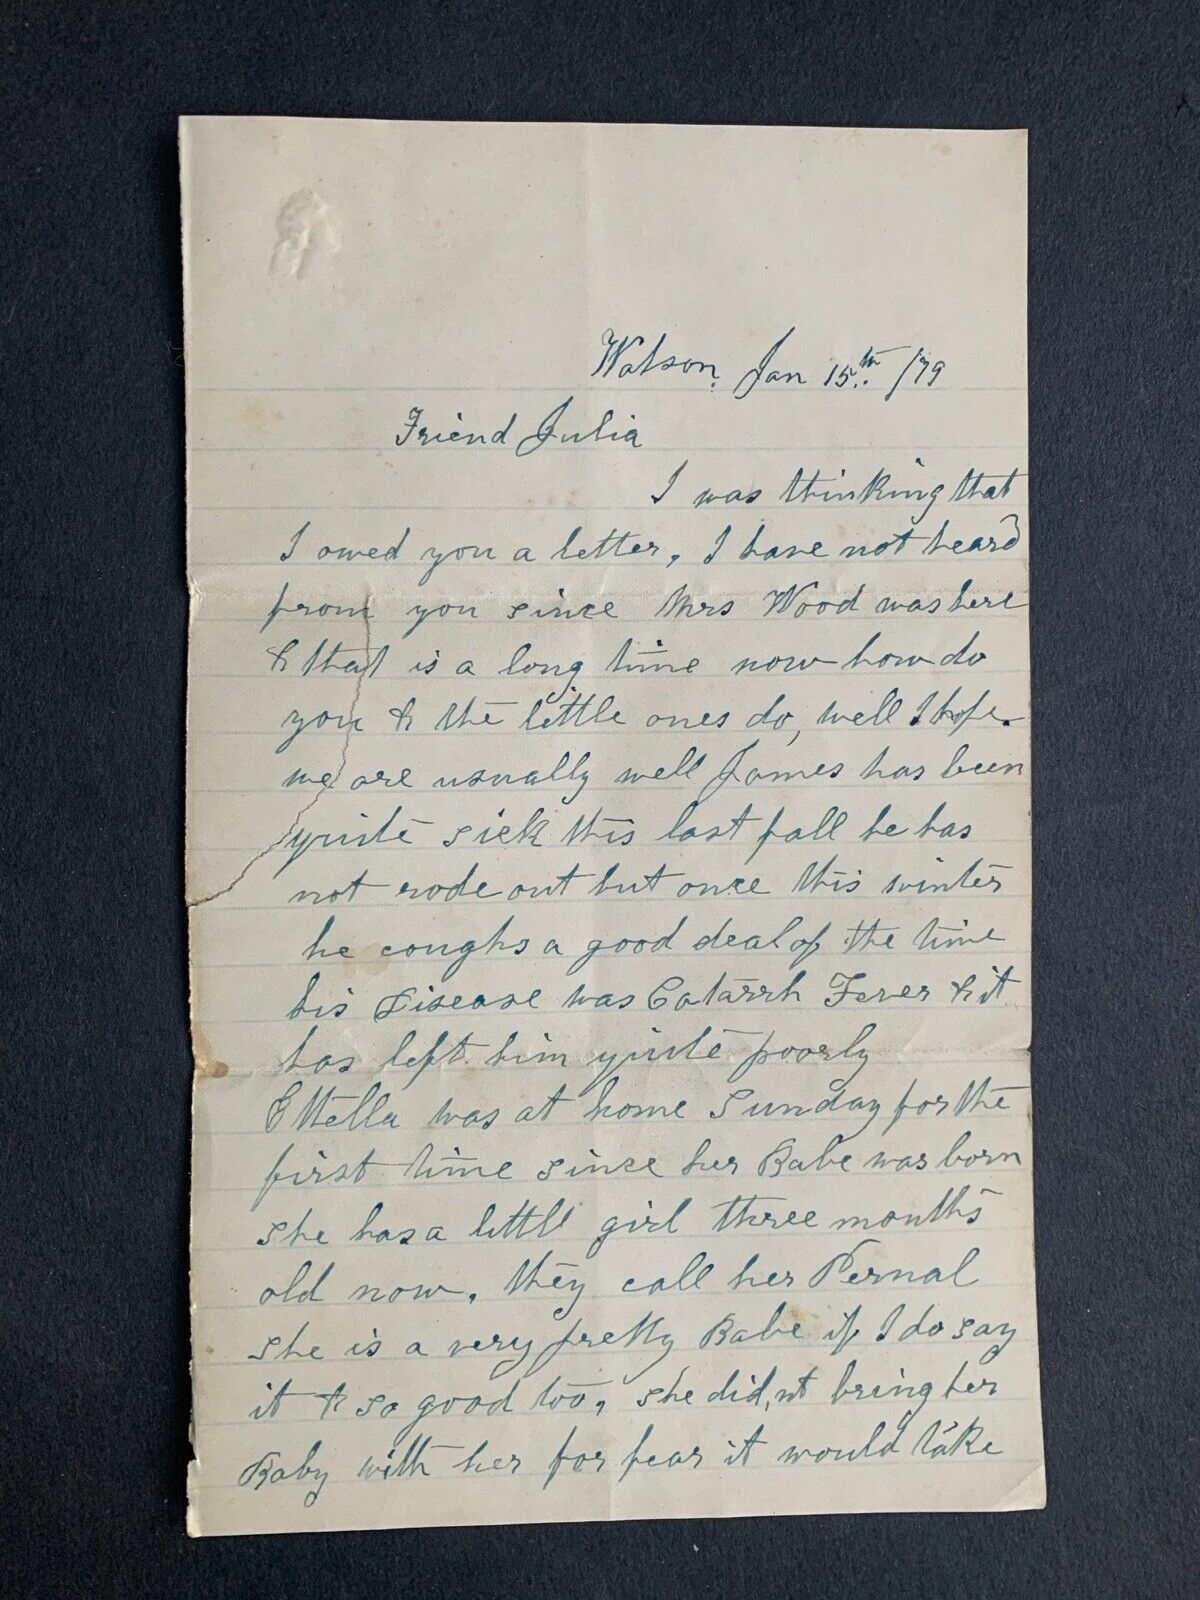 Watson. Jan 15.th /79
Friend Julia
I was thinking that
I owed you a letter, I have not heard
from you since Mrs Wood was here
& that is a long time now how do
you & the little ones do, well I hope.
we are usually well James has been
quite sick this last fall he has
not rode out but once this winter
he coughs a good deal of the time
his Disease was Catarrh Fever & it
has left him quite poorly
Ettella was at home Sunday for the
first time since her Babe was born
she has a little girl three months
old now, they call her Pernal
she is a very pretty Babe if I do say
it & so good too, she did,nt bring her
Baby with her for fear it would take